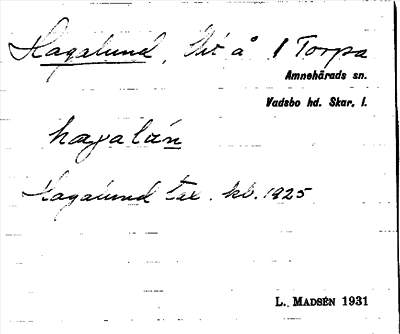 Hagalund, Ht å 1 Torpa
Amnehärads sn.
Vadsbo hd. Skar. l.
hagalún
Hagalund Tax. kb. 1925
L. MADSÉN 1931